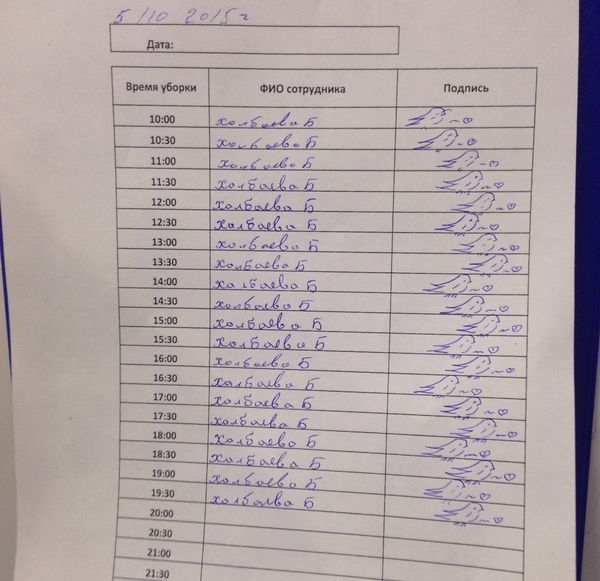 5/10 2015г
Дата:
Время уборки ФИО сотрудника Подпись
10:00 холбаева Б
10:30 холбаева Б
11:00 холбаева Б
11:30 холбаева Б
12:00 холбаева Б
12:30 холбаева Б
13:00 холбаева Б
13:30 холбаева Б
14:00 холбаева Б
14:30 холбаева Б
15:00 холбаева Б
15:30 холбаева Б
16:00 холбаева Б
16:30 холбаева Б
17:00 холбаева Б
17:30 холбаева Б
18:00 холбаева Б
18:30 холбаева Б
19:00 холбаева Б
19:30 холбаева Б
20:00
20:30
21:00
21:30